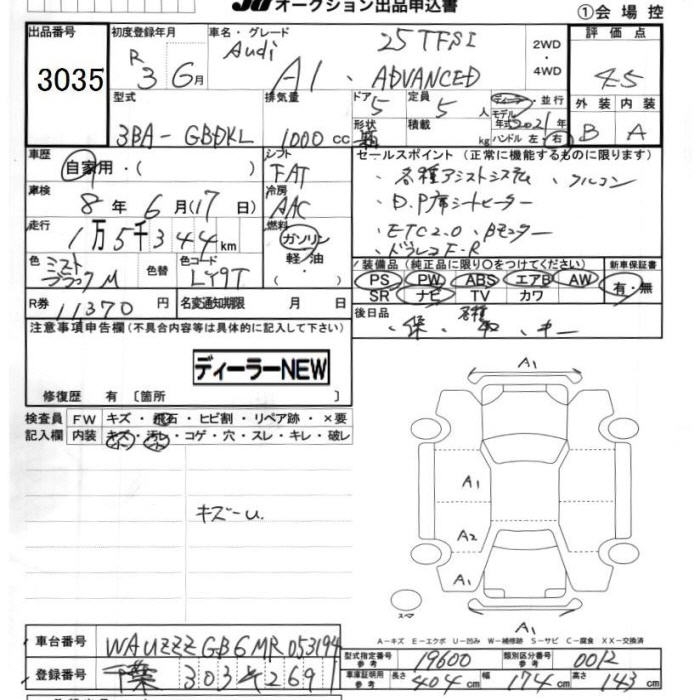 オークション出品申込書
①会場控
出品番号 初度登録年月 車名・グレード 評価点
3035 R 3 6月 Audi A1 25TFSI ADVANCED 2WD・4WD 4.5
型式 排気量 ドア 定員 ディーラー・並行 外装 内装
3BA-GBDKL 1000cc 5 5人 モデル年式 2021年 B A
形状 積載 kg ハンドル 左・右
車歴 シフト セールスポイント(正常に機能するものに限ります)
自家用・( ) FAT ・各種アシストシステム、クルコン
車検 冷房 ・D.P席シートヒーター
8年6月(17日) AAC ・ETC2.0、Bモニター
走行 燃料 ・ドラレコF・R
1万5千344km ガソリン 軽油・
色 色替 色コード 装備品(純正品に限り○をつけてください) 新車保証書
ミストブラックM LY9T PS PW ABS エアB AW 有・無
SR ナビ TV カワ
R券 11370円 名変通知期限 月 日 後日品
・保、各種取、キー
注意事項申告欄(不具合内容等は具体的に記入して下さい)
ディーラーNEW
修復歴 有〔箇所 〕
検査員 FW キズ・飛石・ヒビ割・リペア跡・×要
記入欄 内装 キズ・汚れ・コゲ・穴・スレ・キレ・破レ
キズーU.
A1
A1
A2
A1
A1
スペア
A-キズ E-エクボ U-凹み W-補修跡 S-サビ C-腐食 XX-交換済
車台番号 WAUZZZGB6MR053194 型式指定番号 参考 19600 類別区分番号 参考 0012
登録番号 千葉 303 そ 2691 車庫証明用 参考 長さ 404cm 幅 174cm 高さ 143cm